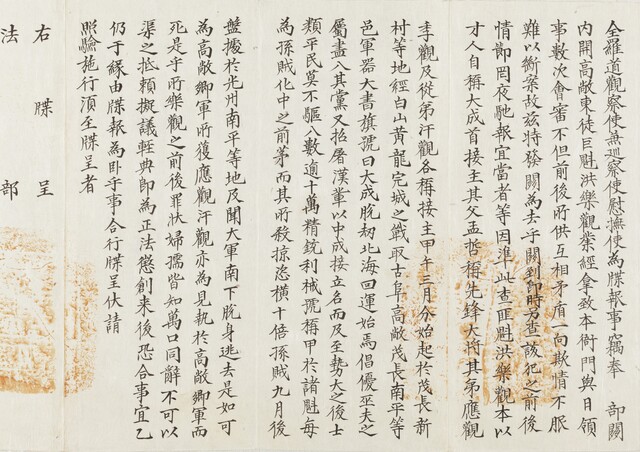 全羅道觀察使兼巡察使慰撫使爲牒報事竊奉 部關
內開高敞東徒巨魁洪樂觀業經拿致本衙門與日領
事數次會審不但前後所供互相矛盾一向欺情不服
難以斷案故玆特發關爲去乎關到卽時另查該犯之前後
情節罔夜馳報宜當者等因準此查匪魁洪樂觀本以
才人自稱大成首接主其父孟哲稱先鋒大將其弟應觀
季觀及從弟汗觀各稱接主甲午三月分始起於茂長新
村等地經白山黃龍完城之戰取古阜高敞茂長南平等
邑軍器大書旗號曰大成脫劒北海回運始焉倡優巫夫之
屬盡入其黨又招屠漢輩以中成接立名而及至勢大之後士
類平民莫不驅入數逾十萬精銳利械號稱甲於諸魁每
爲孫賊化中之前茅而其所殺掠恣橫十倍孫賊九月後
盤據於光州南平等地及聞大軍南下脫身逃去是如可
爲高敞鄕軍所獲應觀汗觀亦爲見執於高敞鄕軍而
死是乎所樂觀之前後罪狀婦孺皆知萬口同辭不可以
渠之抵賴擬議輕典卽爲正法懲創來後恐合事宜乙
仍于緣由牒報爲臥乎事合行牒呈伏請
照驗施行須至牒呈者
右 牒 呈
法 部